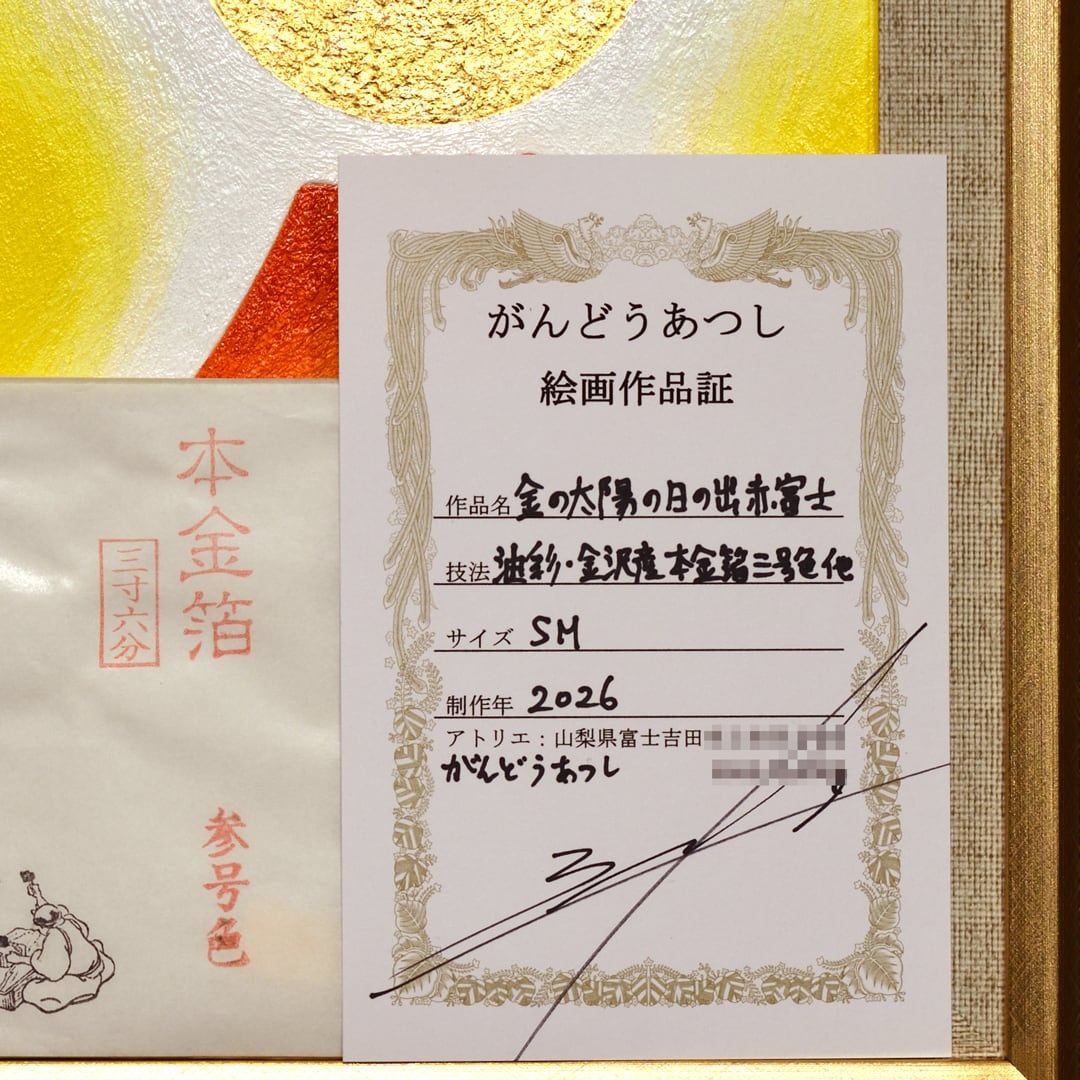 本金箔
三寸六分
参号色
がんどうあつし
絵画作品証
作品名 金の太陽の日の出赤富士
技法 油彩・金沢産本金箔三号色他
サイズ SM
制作年 2026
アトリエ：山梨県富士吉田
がんどうあつし